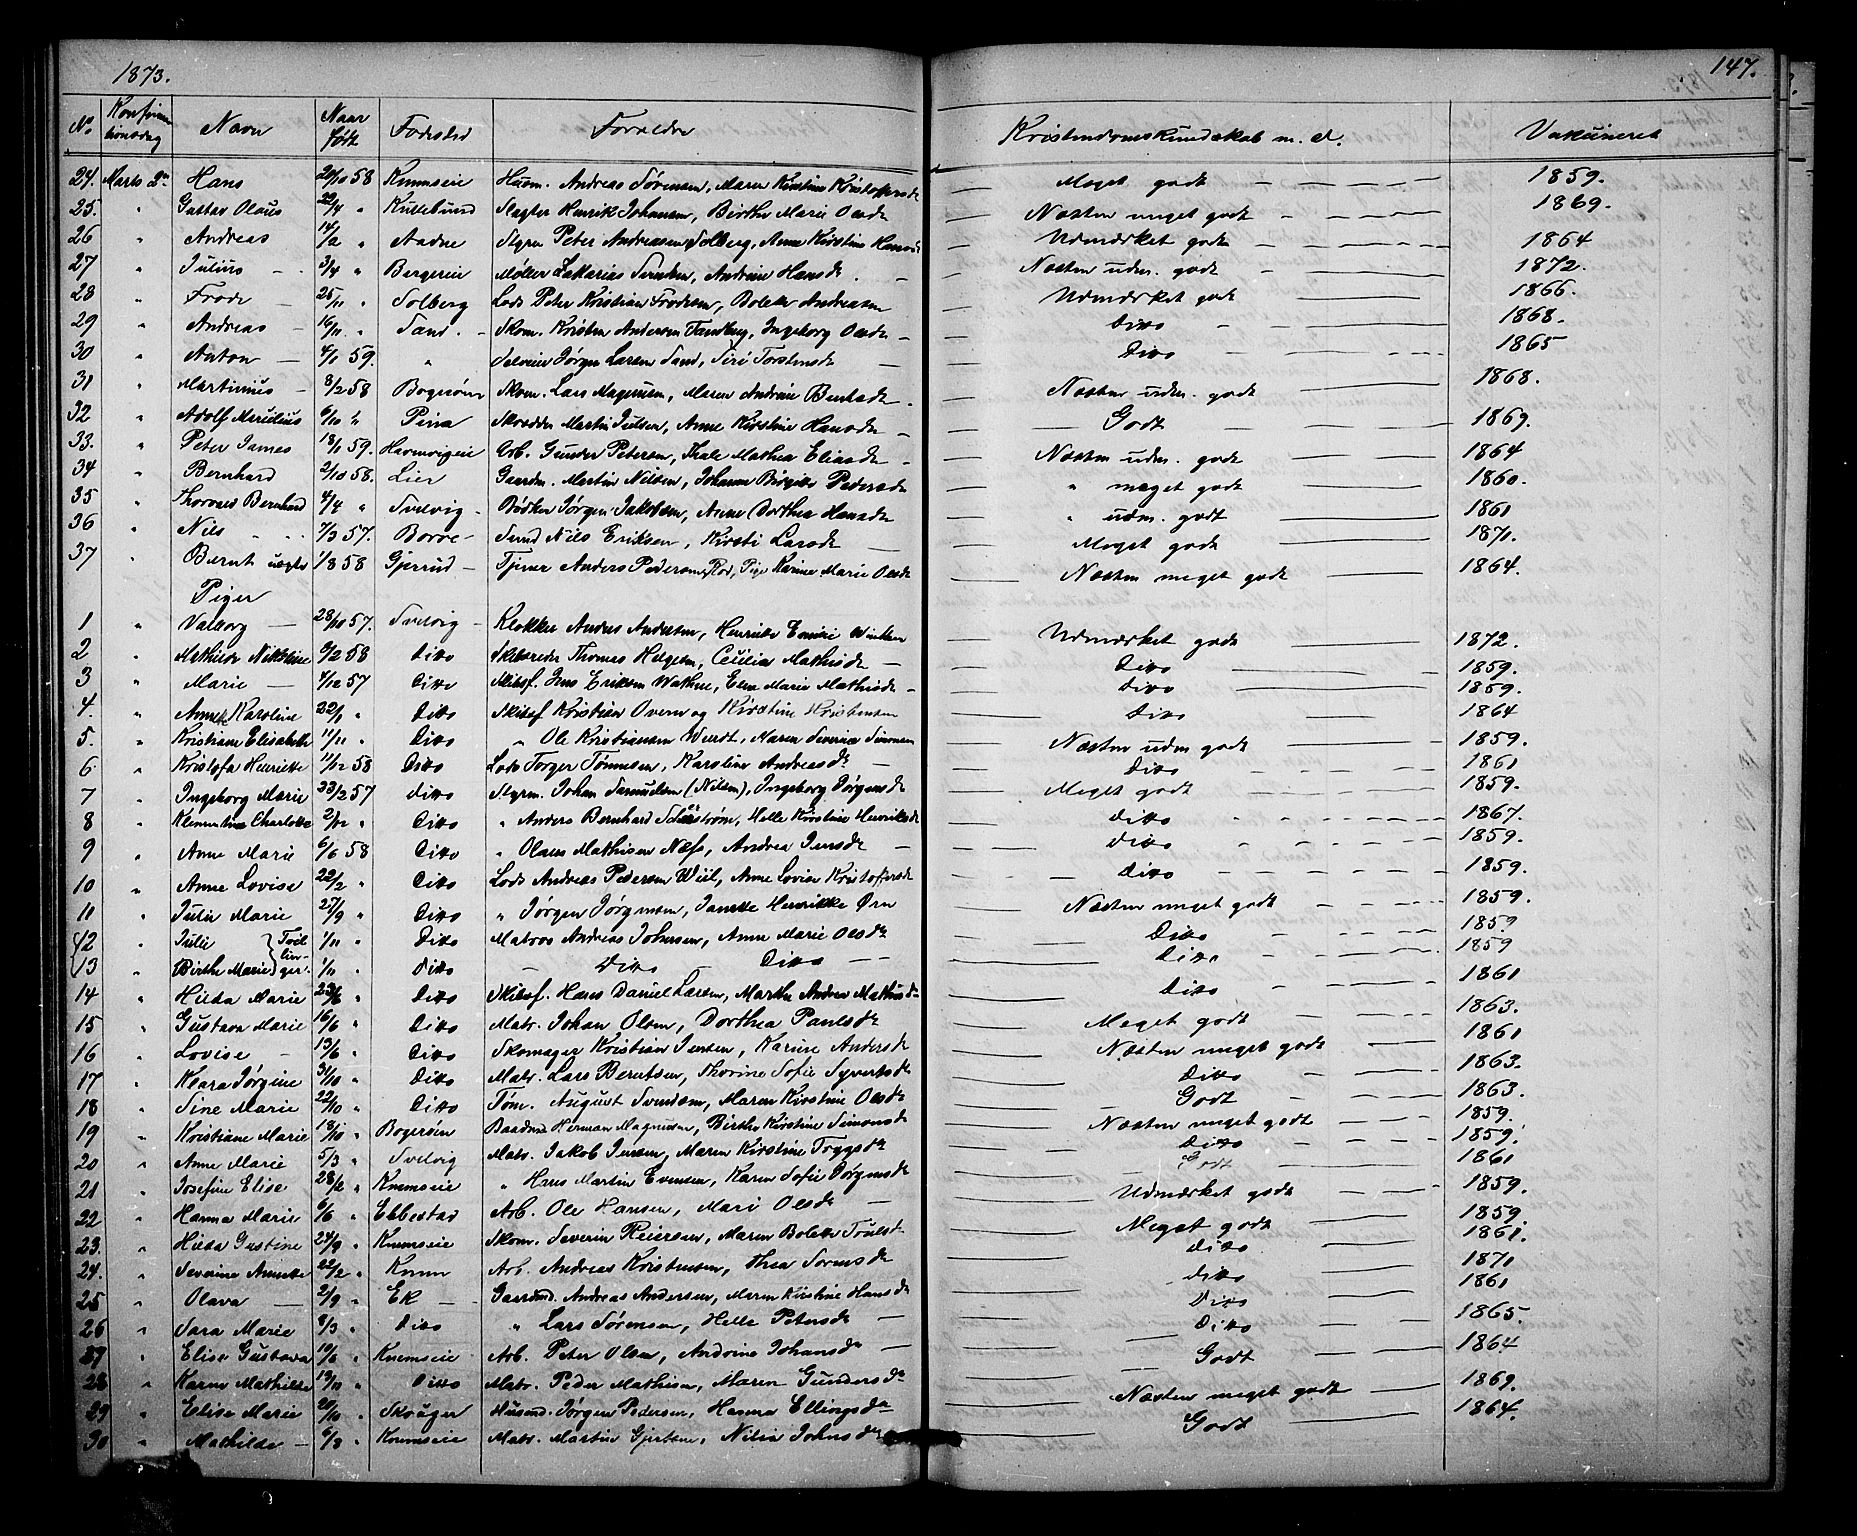 1873.
147.
No Konfirmationsdag Navn Naar født Fødested Forældre Kristendomskundskab m. d. Vakcineret
24. Marts 2den Hans 20/10 58 Knemseie Husm. Andreas Sørensen, Maren Kirstine Kristofersdr Meget godt 1859.
25. " Gustav Olaus 22/4 " Kullebund Slagter Henrik Johansen, Birthe Marie Olsdr Næsten meget godt 1869.
26 " Andreas 14/2 " Aadne Styrm Peter Andreassen Solberg, Anne Kirstine Hansdr Udmærket godt 1864
27 " Julius 3/4 " Bergereie Møller Zakarias Svendsen, Andrine Hansdr Næsten udm. godt 1872.
28 " Frode 25/11 " Solberg Lods Peter Kristian Frodesen, Bolette Andreasen Udmærket godt 1866.
29 " Andreas 16/11 " Sand Skom. Kristen Andersen Tandberg, Ingeborg Olsdr Ditto 1868.
30 " Anton 4/1 59. " Selveier Jørgen Larsen Sand, Siri Torstensdr Ditto 1865
31 " Martinius 8/2 58 Bogerøen Skom. Lars Magnusen, Maren Andrine Bentsdr Næsten udm. godt 1868.
32 " Adolf Meridius 6/10 " Pina Skrædder Martin Julsen, Anne Kirstine Hansdr Godt 1869.
33. " Peter James 18/1 59. Havnvigeie Arb. Gunder Petersen, Thale Mathea Eliasdr Næsten udm. godt 1864
34 " Bernhard 2/10 58. Lier Gaardm. Martin Nilsen, Johanne Birgitte Pedersdr " meget godt 1860.
35 " Thorvald Bernhard 4/4 " Svelvig Bødker Jørgen Jakobsen, Anne Dorthea Hansdr " udm. godt 1861
36 " Nils 7/3 57. Borre Smed Nils Eriksen, Kirsti Larsdr Meget godt 1870.
37 " Bernt uægte 1/8 58 Gjerrud Tjener Anders Pedersen Rød, Pige Karine Marie Olsdr Næsten meget godt 1864.
Piger
1 " Valborg 28/10 57. Svelvig Klokker Anders Andersen, Henriette Emilie Winther Udmærket godt 1872.
2 " Mathilde Nikoline 9/2 58 Ditto Skibsreder Thomas Helgesen, Cecilia Mathisdr Ditto 1859.
3 " Marie 4/12 57 Ditto Skibsf. Jens Eriksen Wathne, Elen Marie Mathisdr Ditto 1859.
4. " Annette Karoline 22/1 " Ditto Skibsf Kristian Overn og Kirstine Kristensen Ditto 1864
5. " Kristiane Elisabeth 11/11 " Ditto " Ole Kristiansen Werdt, Maren Severine Simonsen Næsten udm godt 1859.
6 " Kristofa Henriette 11/12 58 Ditto Lods Torger Tønnesen, Karoline Andreasdr Ditto 1861
7 " Ingeborg Marie 23/2 57 Ditto Styrm. Johan Samuelsen (Nilsen), Ingeborg Jørgensdr Meget godt 1859.
8 " Klementine Charlotte 2/12 " Ditto " Anders Bernhard Sjöström, Helle Kirstine Henriksdr Ditto 1867.
9 " Anne Marie 6/6 58 Ditto " Olaus Mathisen Næss, Andrea Jensdr Ditto 1859.
10 " Anne Lovise 22/2 " Ditto Lods Andreas Pedersen Wiil, Anne Lovise Kristofersdr Ditto 1859.
11 " Julie Marie 27/9 " Ditto " Jørgen Jørgensen, Janette Henrikke Ørn Næsten meget godt 1859.
12 " Julie 1/11 " Ditto Matros Andreas Johnsen, Anne Marie Olsdr Ditto 1859
Tvillinger
13 " Birthe Marie 1/11 " Ditto Ditto Ditto Ditto 1859
14 " Hilda Marie 23/6 " Ditto Skibsf. Hans Daniel Larsen, Marthe Andrea Mathisdr Ditto 1861
15 " Gustava Marie 16/6 " Ditto Matr. Johan Olsen, Dorthea Paulsdr Meget godt 1863.
16 " Lovise 13/6 " Ditto Skomager Kristian Jensen, Karine Andersdr Næsten meget godt 1861
17 " Klara Jørgine 31/10 " Ditto Matr. Lars Berntsen, Thorine Sofie Syvertsdr Ditto 1863.
18 " Sine Marie 22/10 " Ditto Tøm. August Svendsen, Maren Kirstine Olsdr Godt 1863.
19 " Kristiane Marie 18/10 " Bogerøen Baadsmd Herman Magnusen, Birthe Kirstine Simonsdr Næsten meget godt 1859.
20 " Anne Marie 5/3 " Svelvig Matr. Jakob Jensen, Maren Kirstine Trygsdr Ditto 1859.
21 " Josefine Elise 28/2 " Knemseie " Hans Martin Evensen, Karen Sofie Jørgensdr Godt 1861
22 " Hanna Marie 6/6 " Ebbestad Arb. Ole Hansen, Mari Olsdr Udmærket godt 1859.
23. " Hilda Gustine 24/9 " Knemseie Skom. Severin Reiersen, Maren Bolette Poulsdr Meget godt 1859.
24. " Severine Annette 22/2 " Knem Arb. Andreas Kristensen, Thea Sørensdr Ditto 1861.
25 " Olava 2/9 " Ek Gaardmd. Andreas Andersen, Maren Kirstine Hansdr Ditto 1870
26 " Sara Marie 8/3 " Ditto " Lars Sørensen, Helle Petersdr Ditto 1861
27 " Elise Gustava 19/6 " Knemseie Arb. Peter Olsen, Andrine Johansdr Ditto 1865.
28 " Karen Mathilde 13/10 " Ditto Matr. Peder Mathisen, Maren Gundersdr Godt 1864
29 " Elise Marie 20/10 " Skoger Husmd. Jørgen Pedersen, Hanna Ellingsdr Næsten meget godt 1869.
30 " Mathilde 6/3 " Knemseie Matr. Martin Gjertsen, Nilia Johnsdr Godt 1864.